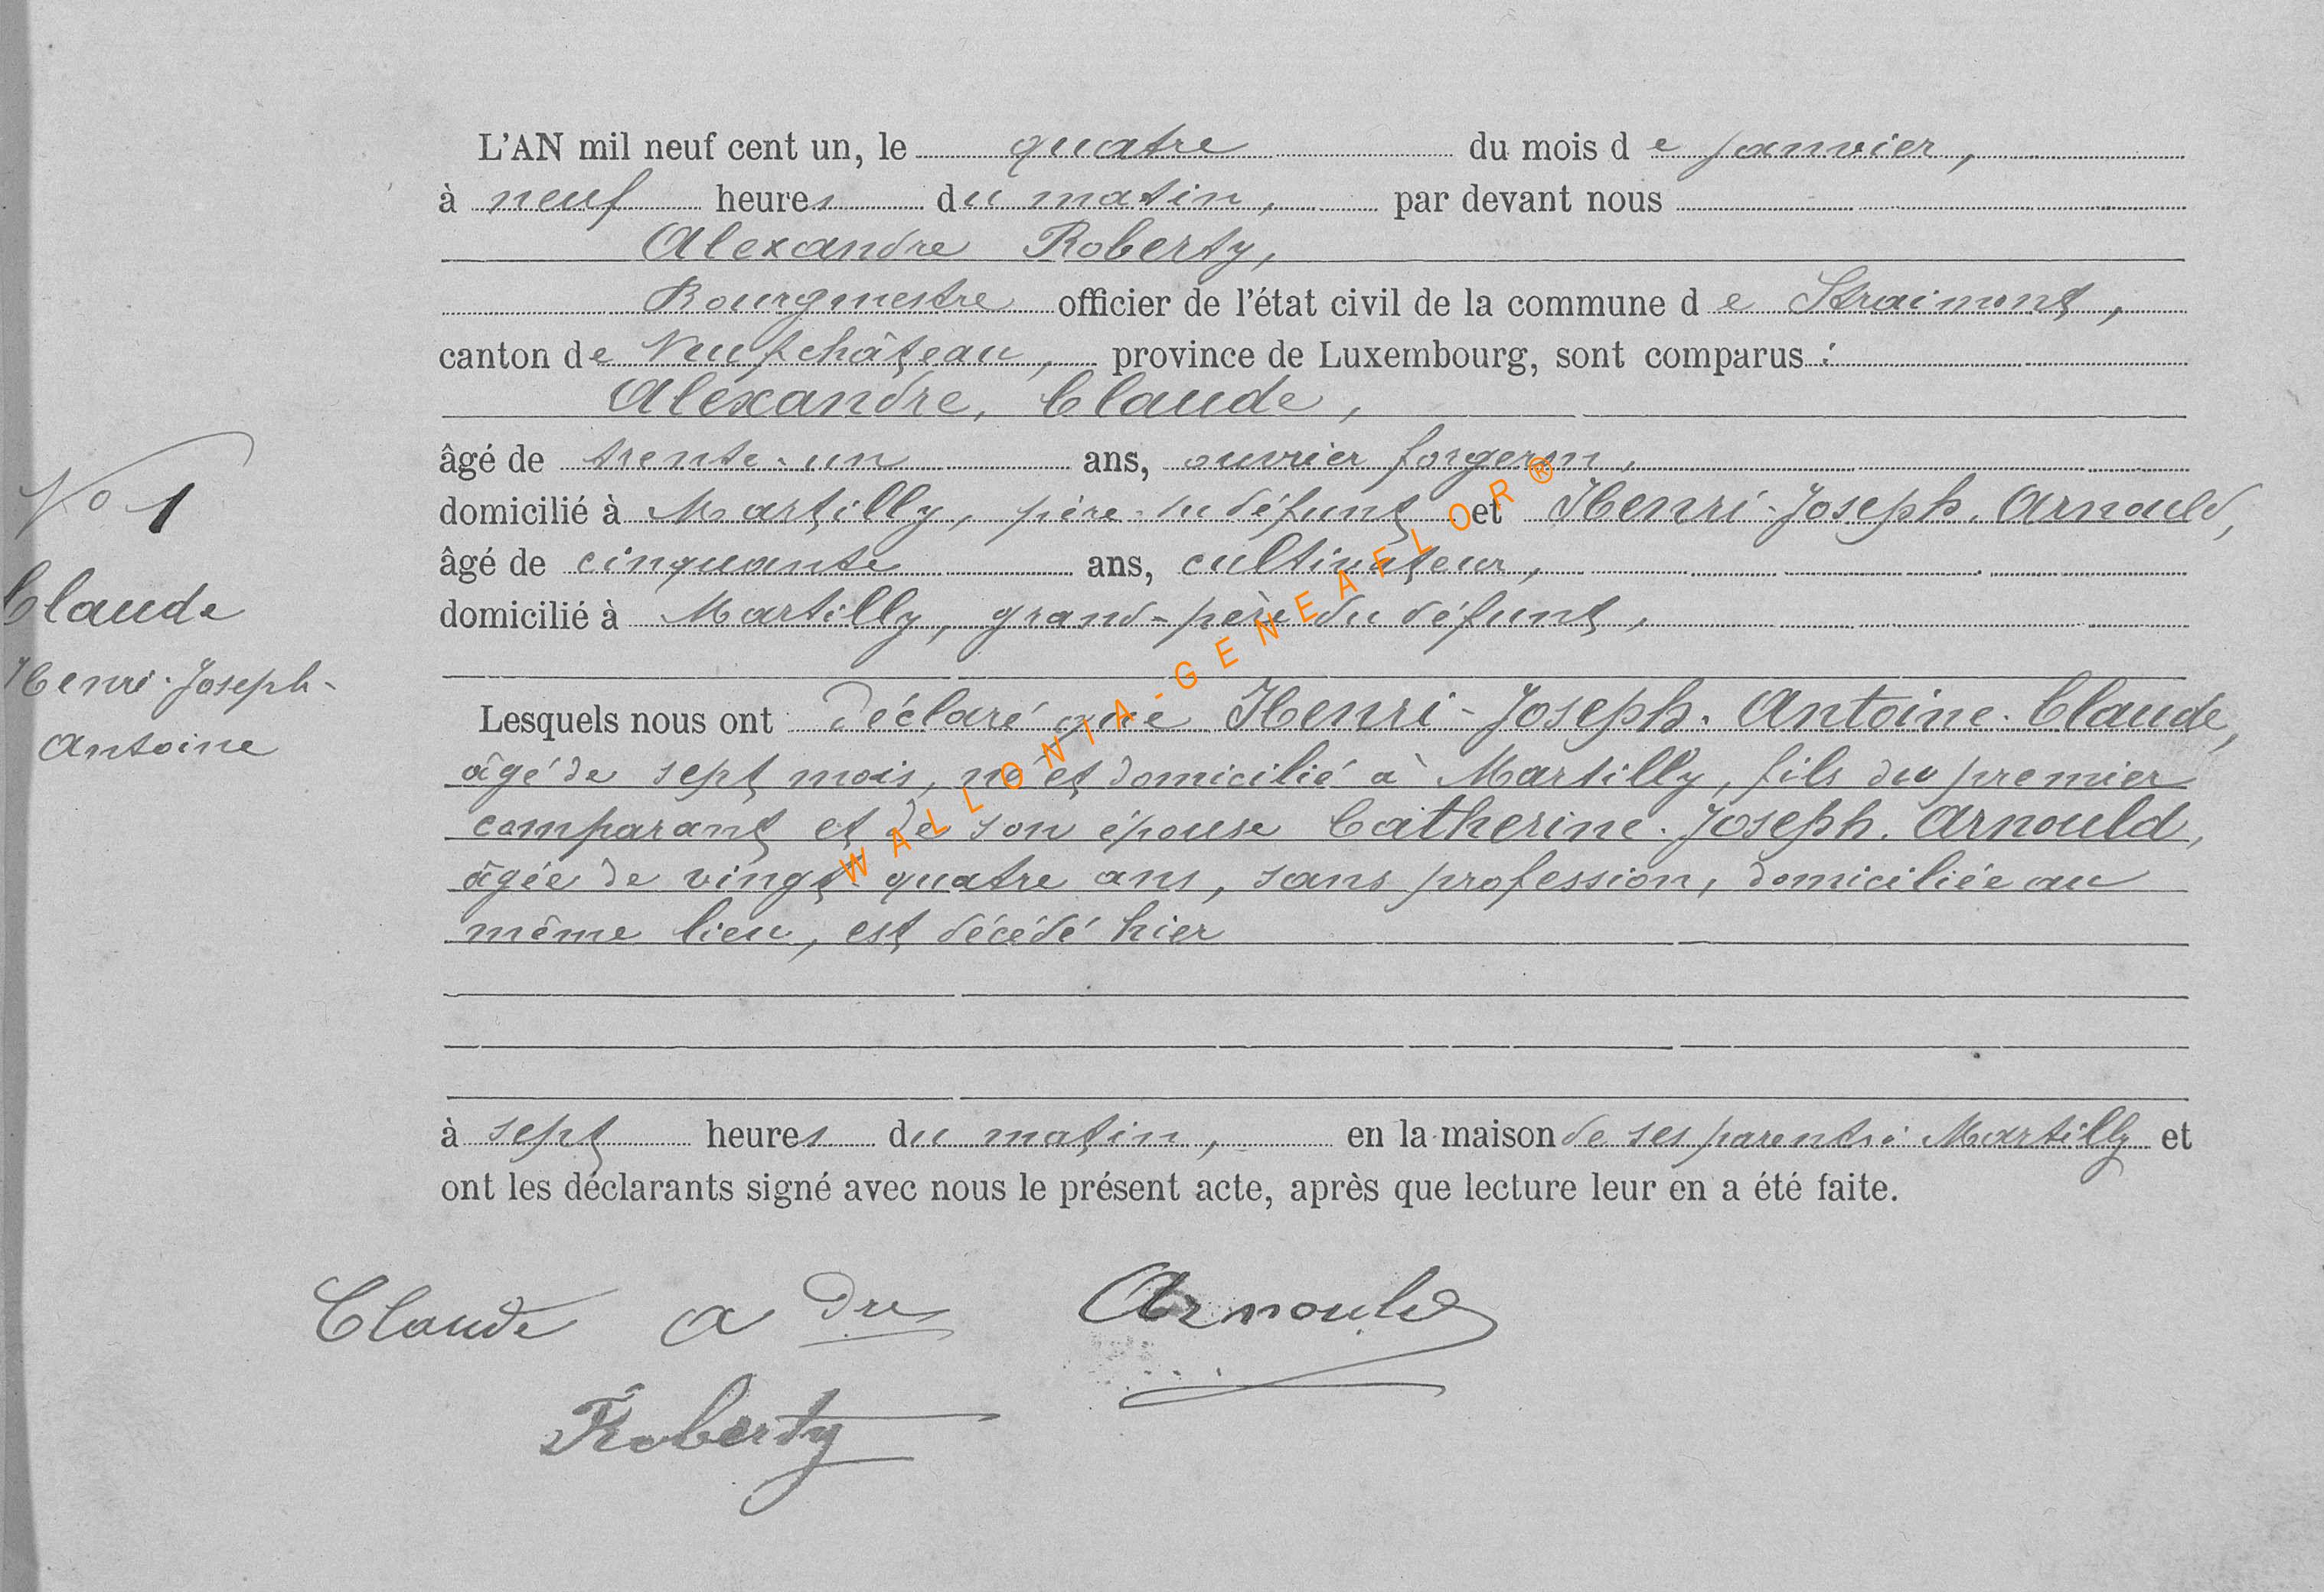 L'AN mil neuf cent un, le quatre du mois de janvier,
à neuf heures du matin, par devant nous
Alexandre Roberty,
Bourgmestre officier de l'état civil de la commune de Straimont,
canton de Neufchâteau, province de Luxembourg, sont comparus :
Alexandre, Claude,
âgé de trente-un ans, ouvrier forgeron,
domicilié à Martilly, père du défunt et Henri-Joseph. Arnould,
âgé de cinquante ans, cultivateur,
domicilié à Martilly, grand-père du défunt,
Lesquels nous ont déclaré que Henri-Joseph. Antoine. Claude,
âgé de sept mois, né et domicilié à Martilly, fils du premier
comparant et de son épouse Catherine. Joseph. Arnould,
âgée de vingt-quatre ans, sans profession, domiciliée au
même lieu, est décédé hier
à sept heures du matin, en la maison de ses parents à Martilly et
ont les déclarants signé avec nous le présent acte, après que lecture leur en a été faite.
No 1
Claude
Henri-Joseph-
Antoine
Claude A dre Arnould
Roberty
WALLONIA-GENEAFLOR®